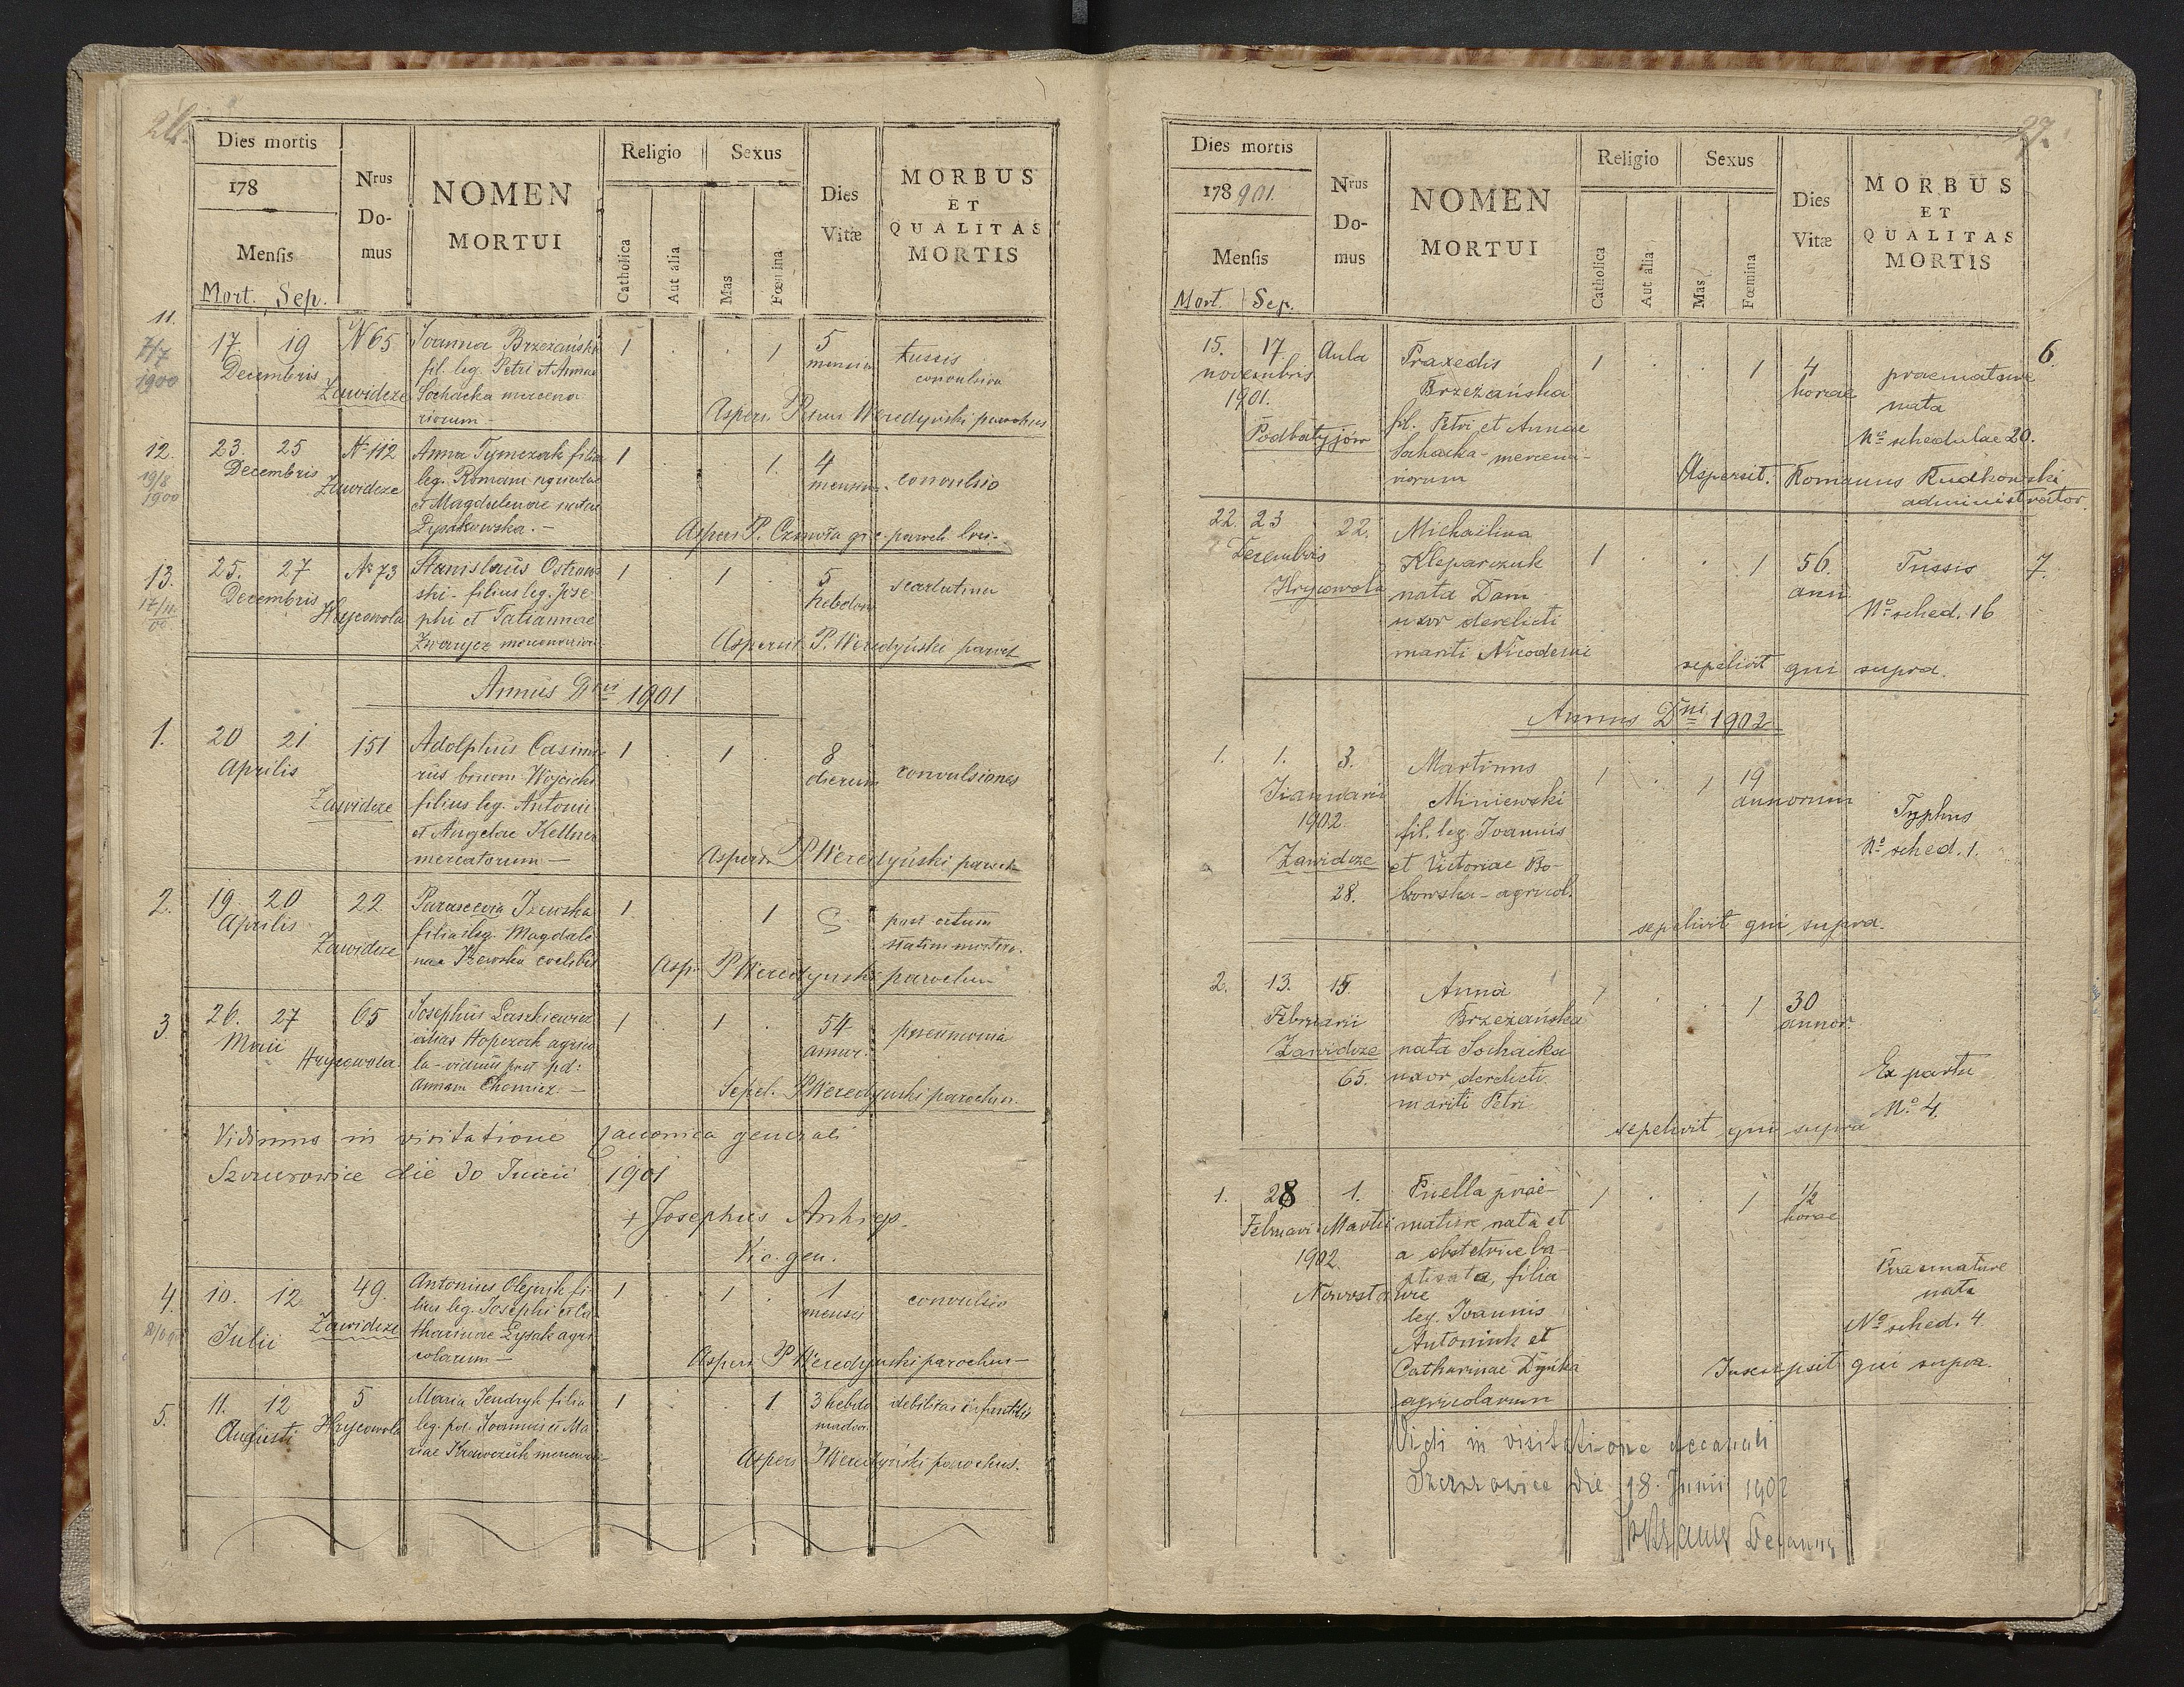 26.
Dies mortis
178
Mensis
Mort. Sep.
Nrus Do- mus
NOMEN
MORTUI
Religio
Catholica
Aut alia
Sexus
Mas
Fœmina
Dies
Vitæ
MORBUS
ET
QUALITAS
MORTIS
11.
7/7
1900
17 19 N 65 Joanna Brzeżańska 1 1 5 tussis
Decembris fil. leg. Petri et Annae mensium convulsiva
Zawidcze Sochacka mercena
riorum - Aspers. Petrus Weredyński parochus
12.
19/8
1900
23. 25 N 112 Anna Tymczak filia 1 1. 4 convulsio
Decembris leg. Romani agricolae mensium
Zawidcze et Magdalenae natae
Aspers P. paroch
13.
25. 27 N 73 Stanislaus Ostrow- 1 1 5 scarlatina
Decembris ski - filius leg. Jose- hebdom
Hrycowola phi et Tatiannae
Aspersit P. Weredyński paroch
Annus Dni 1901
1. 20 21 151 Adolphus Casimi- 1 1 8 convulsiones
Aprilis rus binom Wojcicki dierum
Zawidcze filius leg. Antonii
et Angelae Kellner
mercatorum - Aspers. P Weredyński paroch
2. 19. 20 22 Parascevia 1. 1 post ortum
Aprilis filia Magdale statim mortua.
Zawidcze nae coelibis
Asp. P Weredyński parochus
3. 26. 27 65 Josephus Laszkiewicz 1 1 54 pneumonia
Maii alias agrico annor.
Hrycowola la - viduus post pd:
Annam
Sepel. P Weredyński parochus.
Vidimus in visitatione canonica generali
Szczurowice die 30 Junii 1901
+ Josephus Arhiep.
Vic. gen.
4. 10. 12 49. Antonius Olejnik fi- 1 1 1 convulsio
Julii lius leg. Josephi et Ca- mensis
Zawidcze tharinae Łysak agri
colarum - Aspers. P Weredyński parochus -
5. 11. 12 5 Maria Jendryk filia 1 1 3 hebdo debilitas infantilis
Augusti leg. pd. Joannis et Ma madar.
Hrycowola riae Krawczuk
Aspers P Weredyński parochus.
27.
Dies mortis
178 901.
Mensis
Mort. Sep.
Nrus Do- mus
NOMEN
MORTUI
Religio
Catholica
Aut alia
Sexus
Mas
Fœmina
Dies
Vitæ
MORBUS
ET
QUALITAS
MORTIS
15. 17. Aula Praxedis 1 1 4 praemature 6.
novembris Brzeżańska horae nata
1901. fil. Petri et Annae
Podbatyjów Sochacka - mercena- No schedulae 20.
riorum Aspersit. Romanus Rudkowski
administrator.
22. 23 22. Michaelina
Decembris Kleparczuk 1 1 56. Tussis 7.
Hrycowola nata Dam ann.
uxor derelicti No sched. 16
mariti Nicodemi
sepelivit qui supra.
Annus Dni 1902
1. 1. 3. Martinus 1 1 19
Januarii Miniewski annorum
1902. fil. leg. Joannis Typhus
Zawidcze et Victoriae Bo- No sched. 1.
28. browska - agricol.
sepelivit qui supra.
2. 13. 15. Anna 1 1 30
Februarii Brzeżańska annor.
Zawidcze nata Sochacka
65. uxor derelicti Ex partu
mariti Petri No 4.
sepelivit qui supra
1. 28 1. Puella prae- 1 1 1/2
Februari Martii mature nata et horae
1902. a obstetrice ba-
ptisata, filia Praemature
Nowostawce nata
leg. Joannis No sched. 4
Antoniuk et
Catharinae Dyńka Inscripsit qui supra.
agricolarum
Vidi in visitatione decanali
Szczurowice die 18. Junii 1902
Decanus